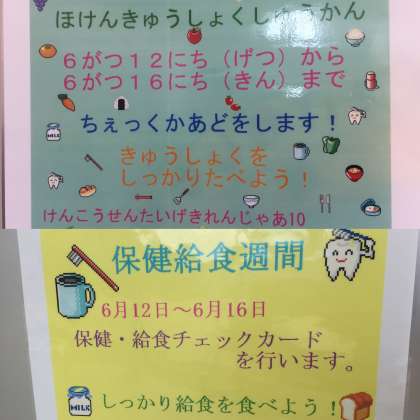 ほけんきゅうしょくしゅうかん
6がつ12にち（げつ）から
6がつ16にち（きん）まで
ちぇっくかあどをします！
きゅうしょくを
しっかりたべよう！
けんこうせんたいげきれんじゃあ10
保健給食週間
6月12日～6月16日
保健・給食チェックカード
を行います。
しっかり給食を食べよう！
MILK
MILK